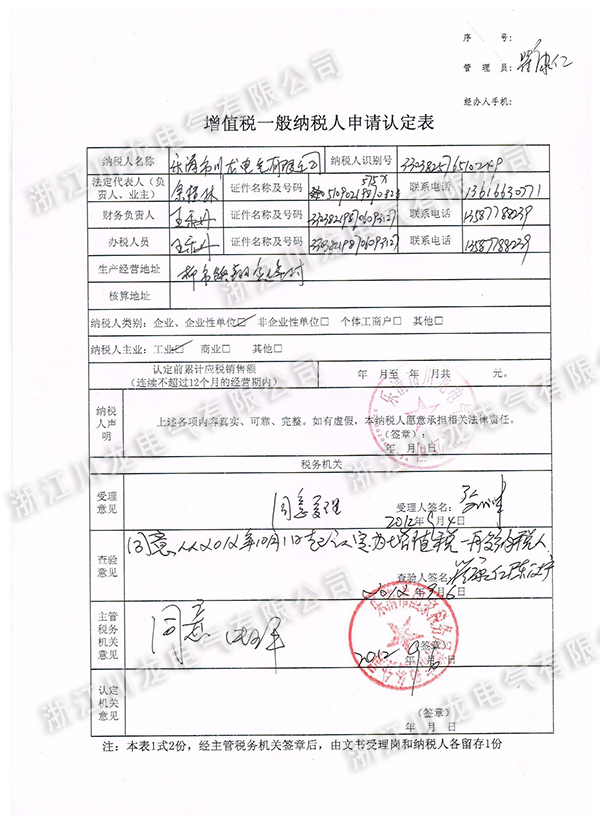 序 号:
管 理 员:
经办人手机:
增值税一般纳税人申请认定表
纳税人名称 乐清市川龙电气有限公司 纳税人识别号
法定代表人(负责人、业主) 证件名称及号码 联系电话 13616630771
财务负责人 证件名称及号码 联系电话 13587788239
办税人员 证件名称及号码 联系电话 13587788239
生产经营地址
核算地址
纳税人类别:企业、企业性单位☑ 非企业性单位□ 个体工商户□ 其他□
纳税人主业:工业☑ 商业□ 其他□
认定前累计应税销售额 年 月至 年 月共 元。
(连续不超过12个月的经营期内)
纳税人声明 上述各项内容真实、可靠、完整。如有虚假,本纳税人愿意承担相关法律责任。
(签章):
年 月 日
税务机关
受理意见 同意受理 受理人签名:
2012年9月4日
查验意见 同意从2012年10月1日起认定为增值税一般纳税人
查验人签名:
2012年9月6日
主管税务机关意见 同意
2012年9月 日
认定机关意见 (签章)
年 月 日
注:本表1式2份,经主管税务机关签章后,由文书受理岗和纳税人各留存1份
浙江川龙电气有限公司